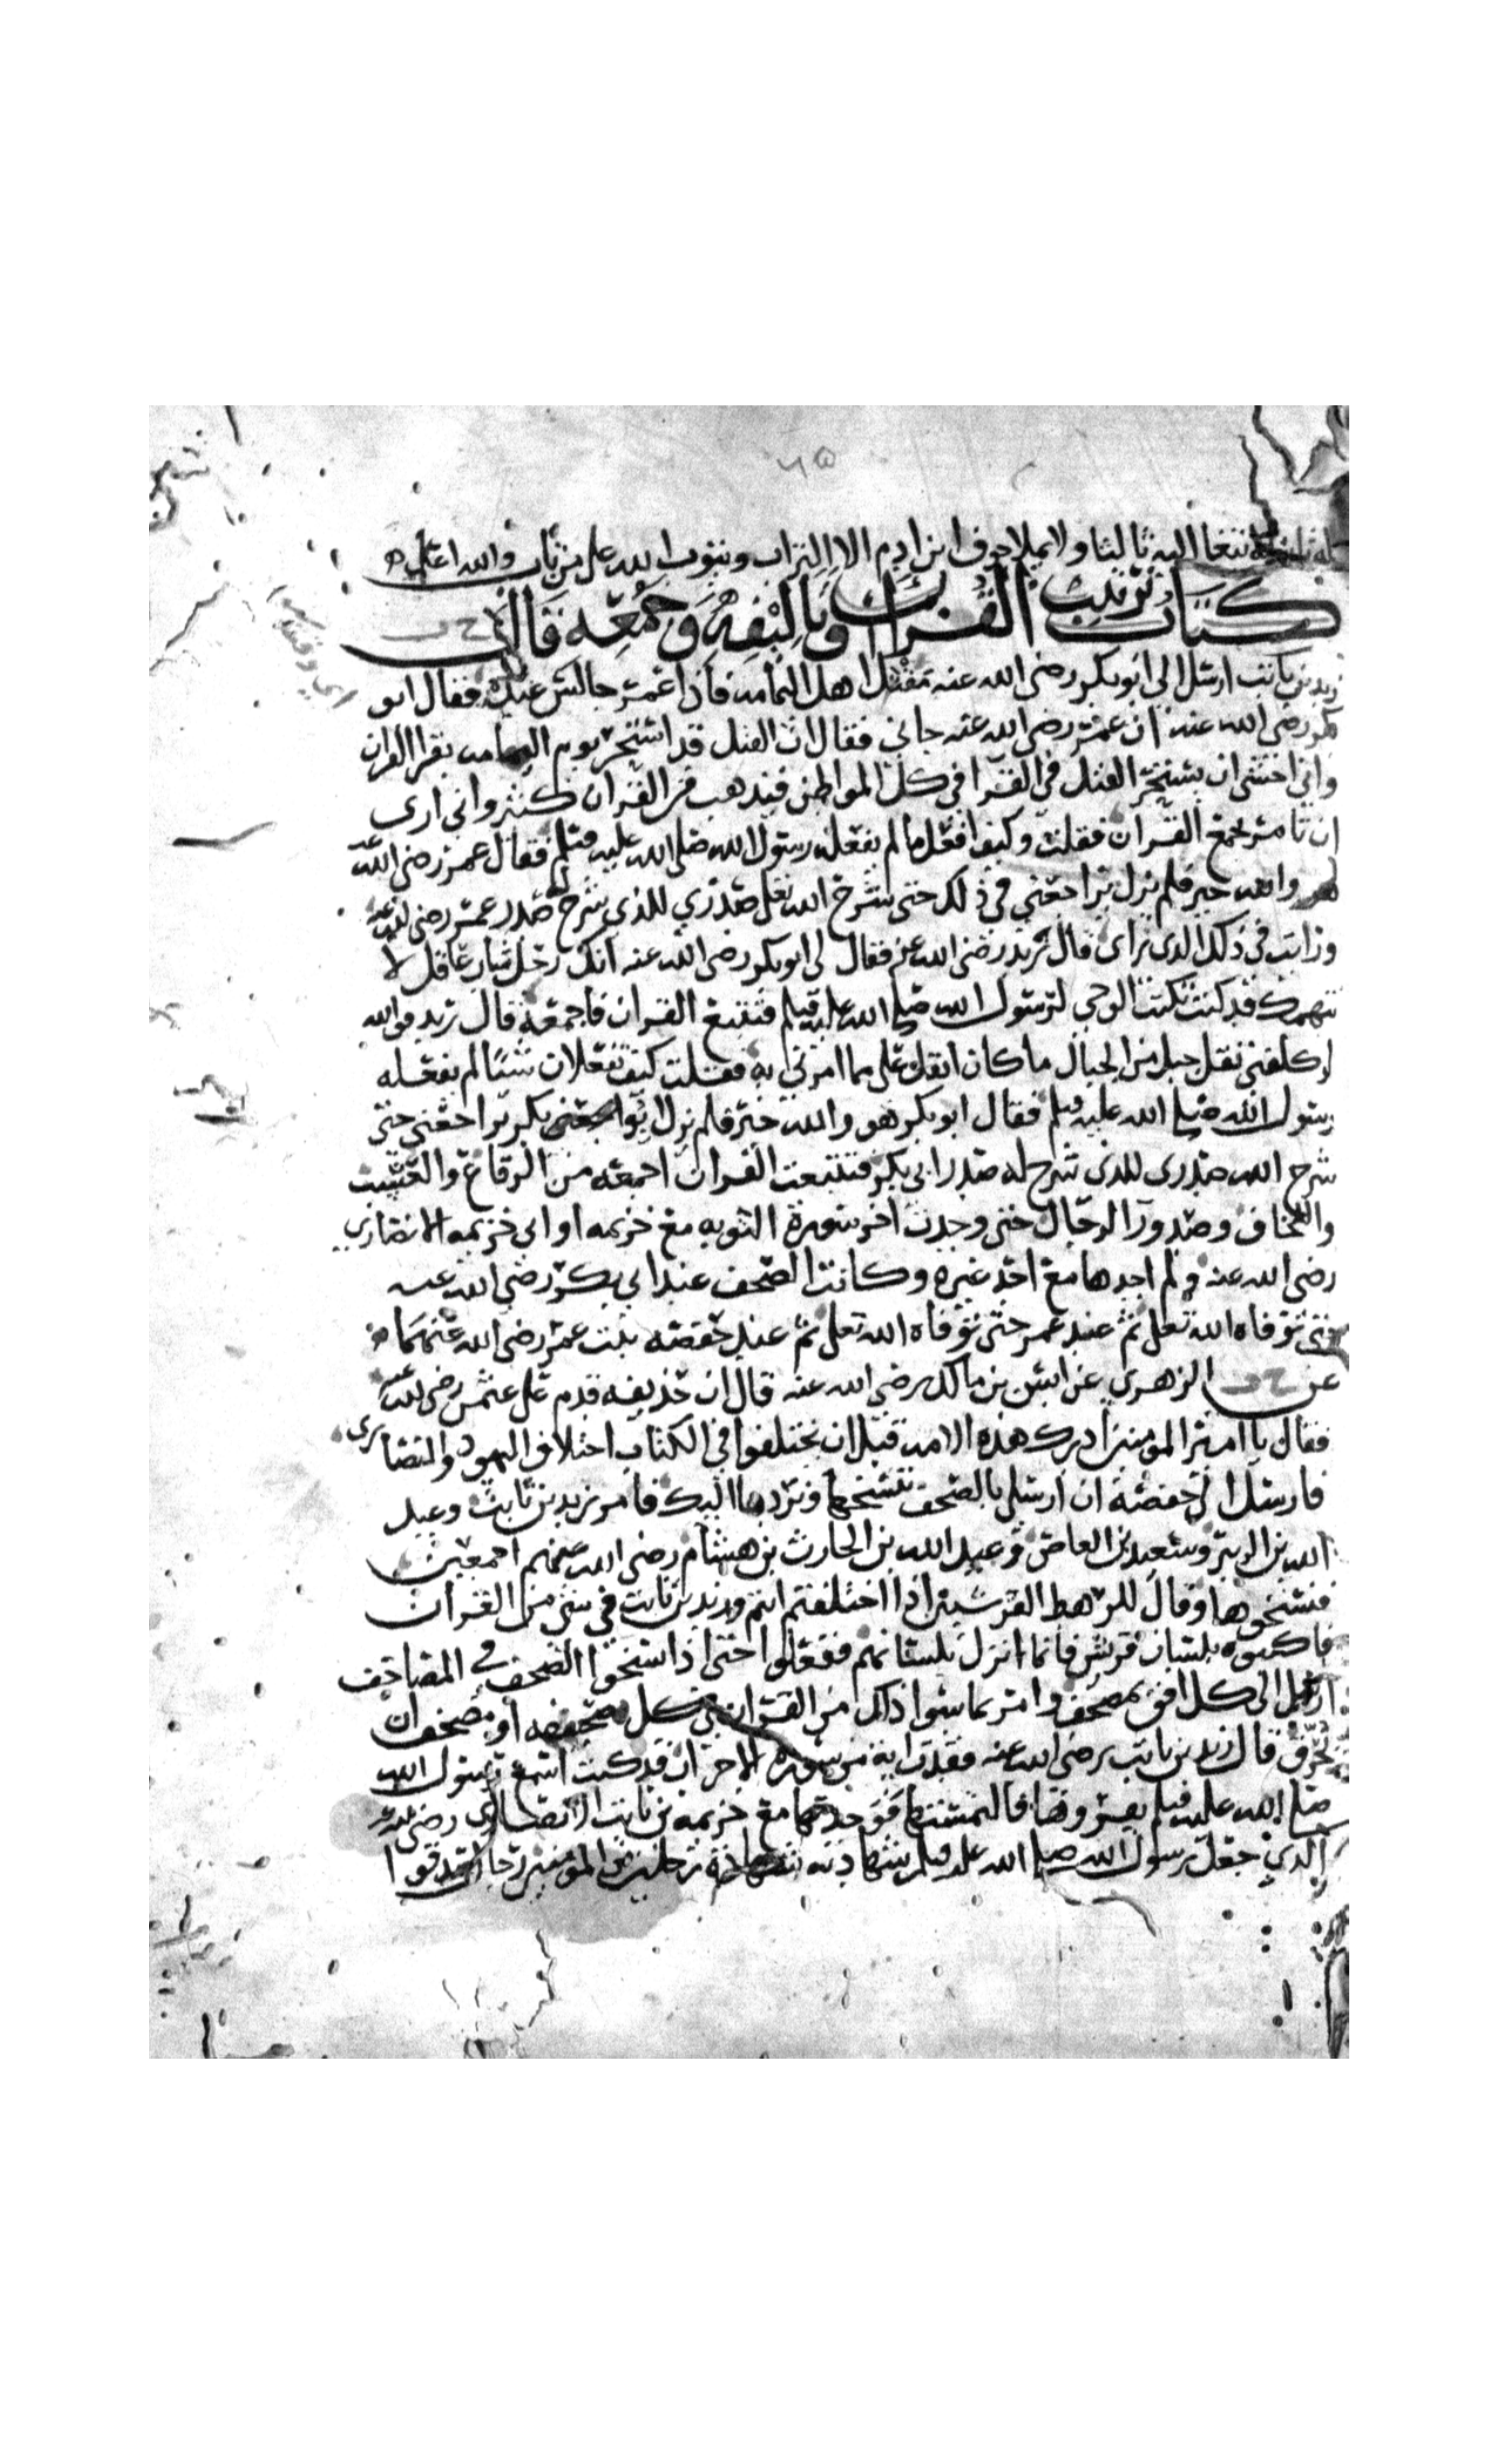 ٦٥
له ثانيا لابتغا اليه ثالثا ولا يملا جوف ابن ادم الا التراب ويتوب الله على من تاب والله اعلم
كتاب ترتيب القران وتاليفه وجمعه قال
زيد بن ثابت ارسل الي ابو بكر رضي الله عنه مقتل اهل اليمامه فاذا عمر جالس عنده فقال ابو
بكر رضي الله عنه ان عمر رضي الله عنه جاني فقال ان القتل قد استحر يوم اليمامه بقرا القران
واني اخشى ان يستحر القتل في القرا في كل المواطن فيذهب من القران كثير واني ارى
ان تامر بجمع القران فقلت وكيف افعل ما لم يفعله رسول الله صلى الله عليه وسلم فقال عمر رضي الله عنه
هو والله خير فلم يزل يراجعني في ذلك حتى شرح الله تعلى صدري للذي شرح صدر عمر رضي الله عنه
ورايت في ذلك الذي راى قال زيد رضي الله عنه فقال لي ابو بكر رضي الله عنه انك رجل شاب عاقل لا
نتهمك قد كنت تكتب الوحي لرسول الله صلى الله عليه وسلم فتتبع القران فاجمعه قال زيد فوالله
لو كلفني نقل جبل من الجبال ما كان اثقل علي مما امرني به فقلت كيف تفعلان شيئا لم يفعله
رسول الله صلى الله عليه وسلم فقال ابو بكر هو والله خير فلم يزل ابو بكر يراجعني حتى
شرح الله صدري للذي شرح له صدر ابي بكر فتتبعت القران اجمعه من الرقاع والعسب
واللخاف وصدور الرجال حتى وجدت اخر سورة التوبه مع خزيمه او ابي خزيمه الانصاري
رضي الله عنه ولم اجدها مع احد غيره وكانت الصحف عند ابي بكر رضي الله عنه
حتى توفاه الله تعلى ثم عند عمر حتى توفاه الله تعلى ثم عند حفصه بنت عمر رضي الله عنهما
عن الزهري عن انس بن مالك رضي الله عنه قال ان حذيفه قدم على عثمن رضي الله عنه
فقال يا امير المومنين ادرك هذه الامه قبل ان يختلفوا في الكتاب اختلاف اليهود والنصارى
فارسل الى حفصة ان ارسلي بالصحف ننسخها ونردها اليك فامر زيد بن ثابت وعبد
الله بن الزبير وسعيد بن العاص وعبد الله بن الحارث بن هشام رضي الله عنهم اجمعين
فنسخوها وقال للرهط القرشيين اذا اختلفتم انتم وزيد بن ثابت في شي من القران
فاكتبوه بلسان قريش فانما انزل بلسانهم ففعلوا حتى اذا نسخوا الصحف في المصاحف
ارسل الى كل افق بمصحف وامر بما سوا ذلك من القران في كل صحيفه او مصحف ان
تحرق قال زيد بن ثابت رضي الله عنه فقدت اية من سورة الاحزاب قد كنت اسمع رسول الله
صلى الله عليه وسلم يقروها فالتمستها فوجدتها مع خزيمه بن ثابت الانصاري رضي الله عنه
الذي جعل رسول الله صلى الله عليه وسلم شهادته شهادة رجلين من المومنين رجال صدقوا